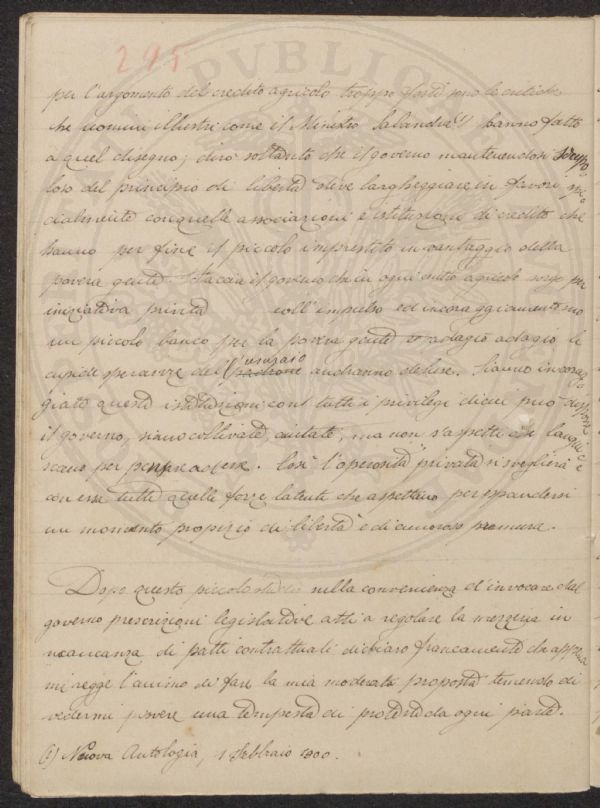 295
per l'argomento del credito agricolo troppo forti sono le critiche
che uomini illustri come il Ministro Salandra (1) hanno fatto
a quel disegno; dirò soltanto che il governo mantenendosi scrupo
loso del principio di libertà deve largheggiare in favori spe
cialmente con quelle associazioni e istituzioni di credito che
hanno per fine il piccolo imprestito in vantaggio della
povera gente. Faccia il governo che in ogni centro agricolo sorga per
iniziativa privata coll'impulso ed incoraggiamento suo
un piccolo banco per la povera gente e adagio adagio le
cupide speranze dell'usuraio andranno deluse. Siano incorag
giate queste istituzioni con tutti i privilegi di cui può disporre
il governo, siano coltivate aiutate, ma non s'aspetti che langui
scano per provvedere. Così l'operosità privata si sveglierà e
con essa tutte quelle forze latenti che aspettano per espandersi
un momento propizio di libertà e di amorose premure.
Dopo questo piccolo studio sulla convenienza d'invocare dal
governo prescrizioni legislative atte a regolare la mezzeria in
mancanza di patti contrattuali dichiaro francamente che appena
mi regge l'animo di fare la mia moderata proposta temendo di
vedermi piovere una tempesta di proteste da ogni parte.
(1) Nuova Antologia, 1 Febbraio 1900.